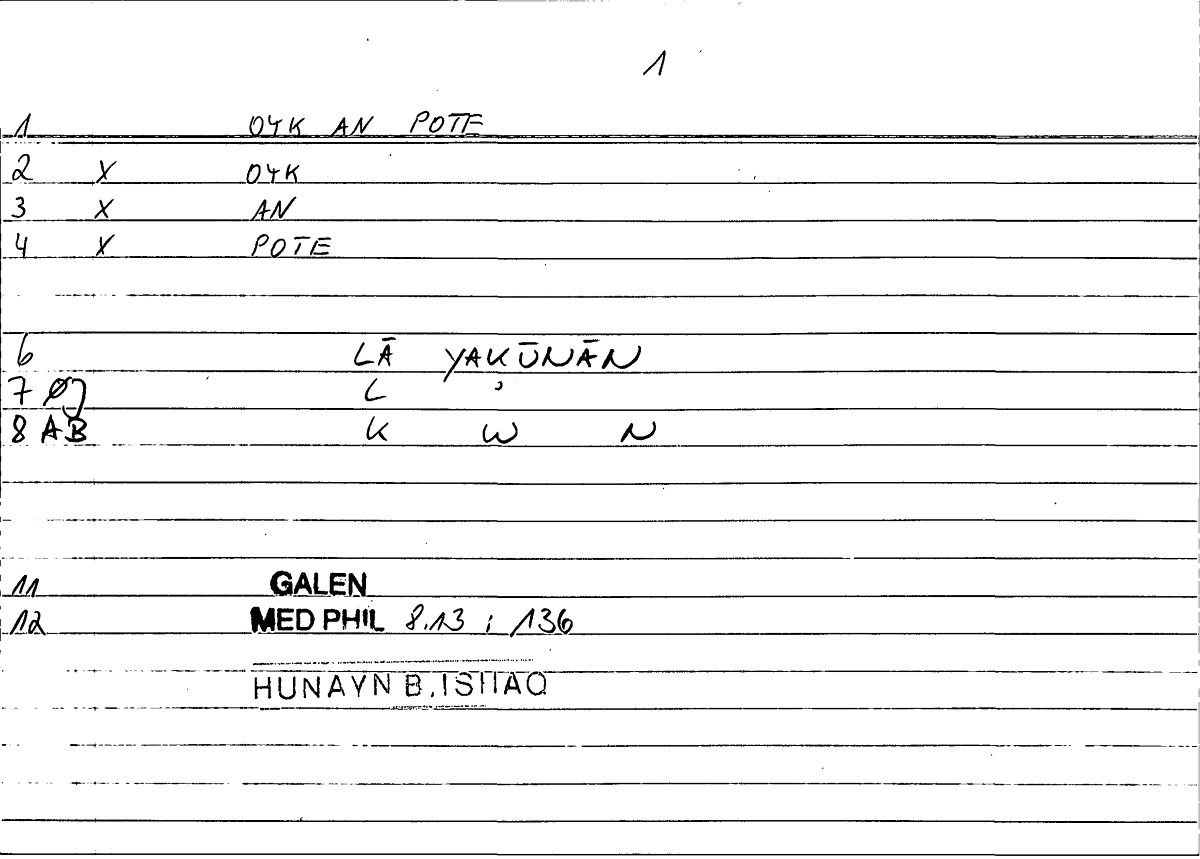 1
1 OYK AN POTE
2 X OYK
3 X AN
4 X POTE
6 LĀ YAKŪNĀN
7 Ø L ʾ
8 AB K W N
11 GALEN
12 MED PHIL 8.13 ; 136
HUNAYN B. ISHAQ